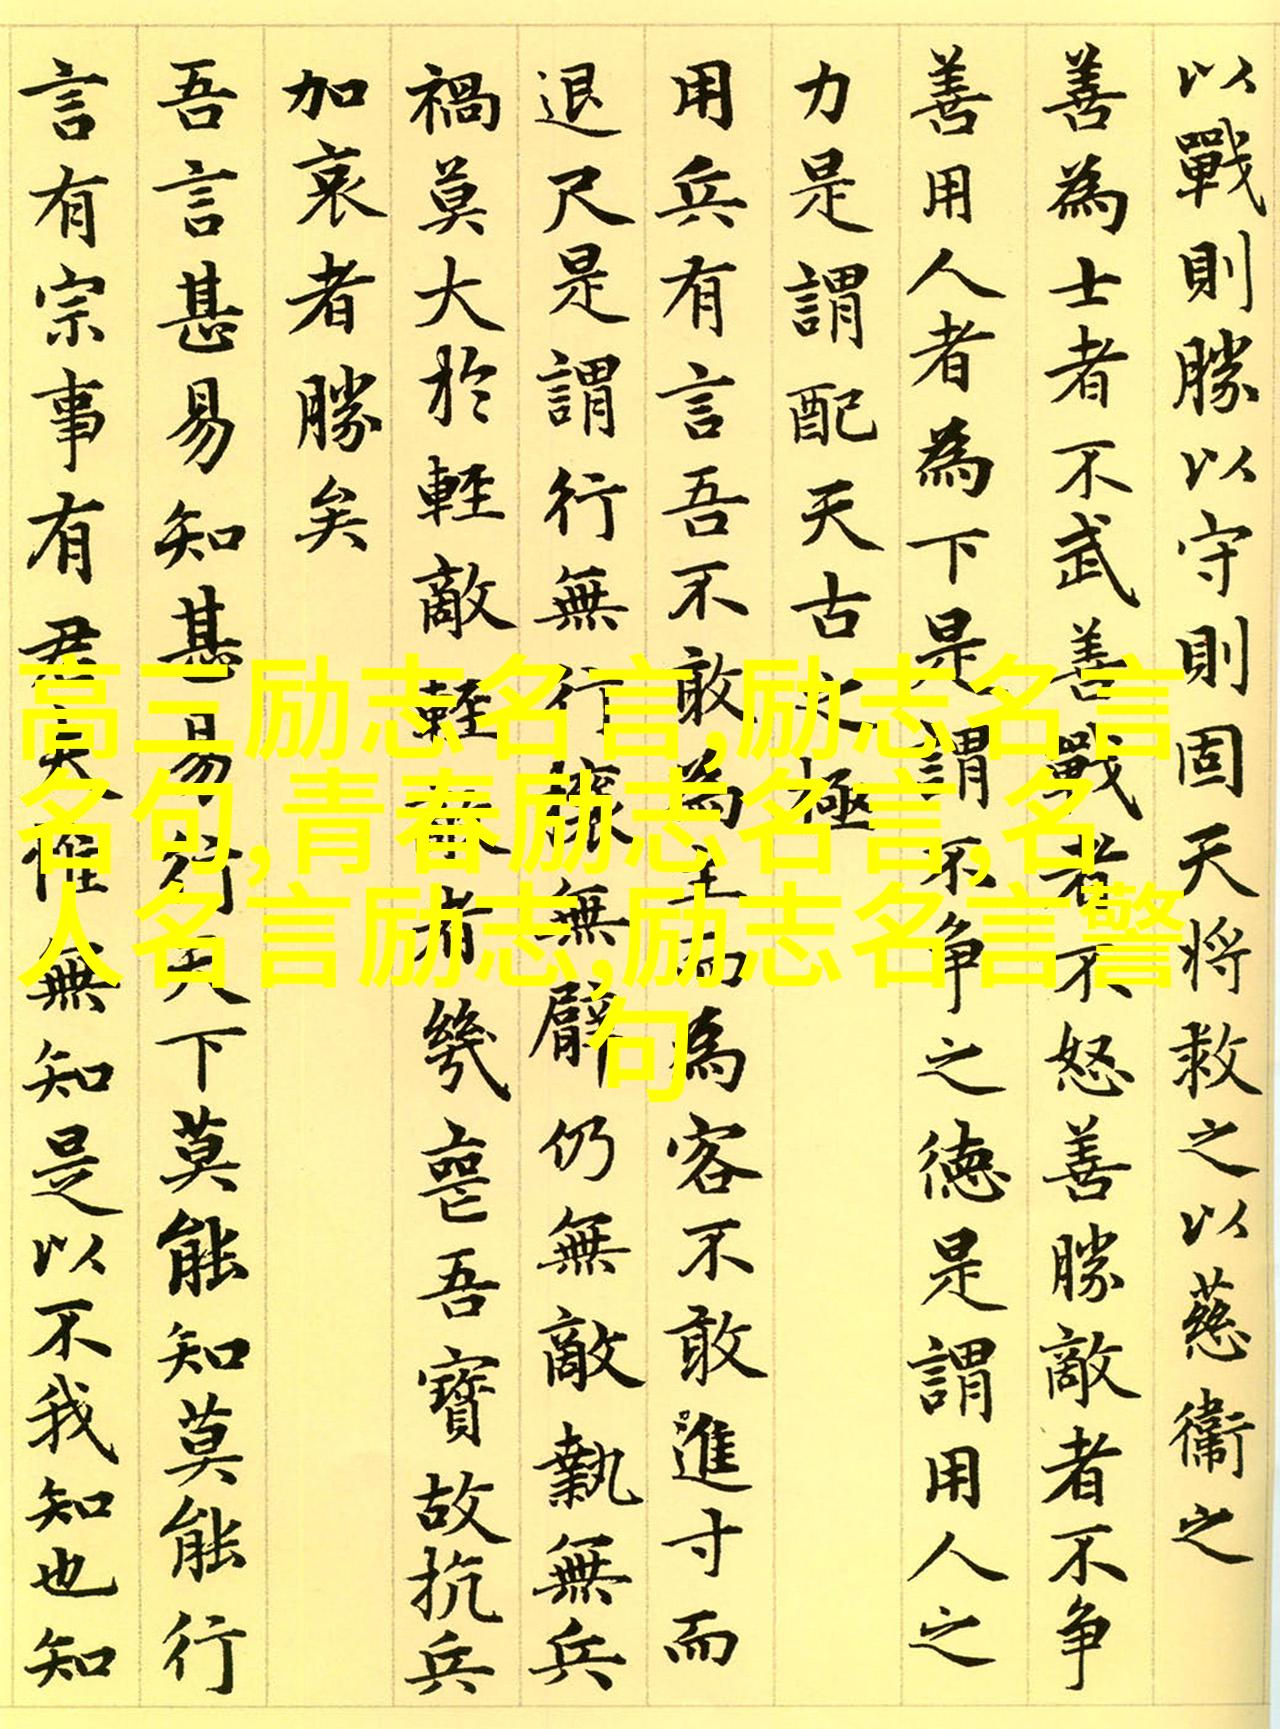 以戰則勝以守則固天将救之以慈衛之
善為士者不武善戰者不怒善勝敵者不争
善用人者為下是謂不争之德是謂用人之
力是謂配天古之極
用兵有言吾不敢為主而為客不敢進寸而
退尺是謂行無行攘無臂仍無敵執無兵
禍莫大於輕敵輕敵者幾喪吾寶故抗兵
加哀者勝矣
吾言甚易知甚易行天下莫能知莫能行
言有宗事有君夫惟無知是以不我知也知
高三励志名言,励志名言
名句,青春励志名言,名
人名言励志,励志名言警
句